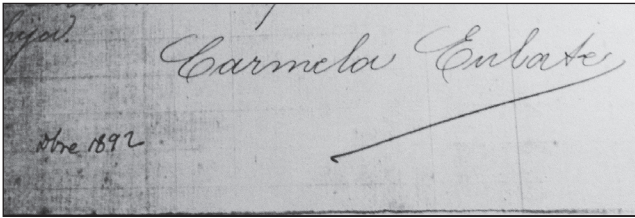 hija.
Carmela Eulate
Dbre 1892